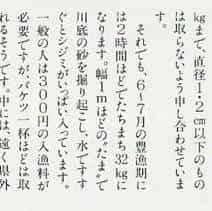 kgまで、直径1・2cm以下のもの
は取らないよう申し合わせていま
す。
それでも、6・7月の豊漁期に
は2時間ほどでたちまち32kgに
なります。幅1mほどの〝たま〟で
川底の砂を掘り起こし、水ですす
ぐとシジミがいっぱい入っています。
一般の人は300円の入漁料が
必要ですが、バケツ一杯ほどは取
れるそうです。中には、遠く県外